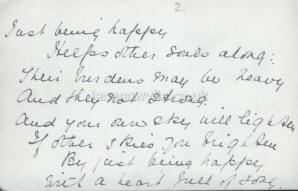 2.
Just being happy
Helps other souls along:
Their burdens may be heavy
And they not strong.
And your own sky will lighten
If other skies you brighten
By just being happy
With a heart full of song